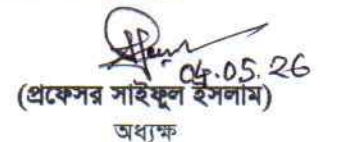 04.05.26
(প্রফেসর সাইফুল ইসলাম)
অধ্যক্ষ